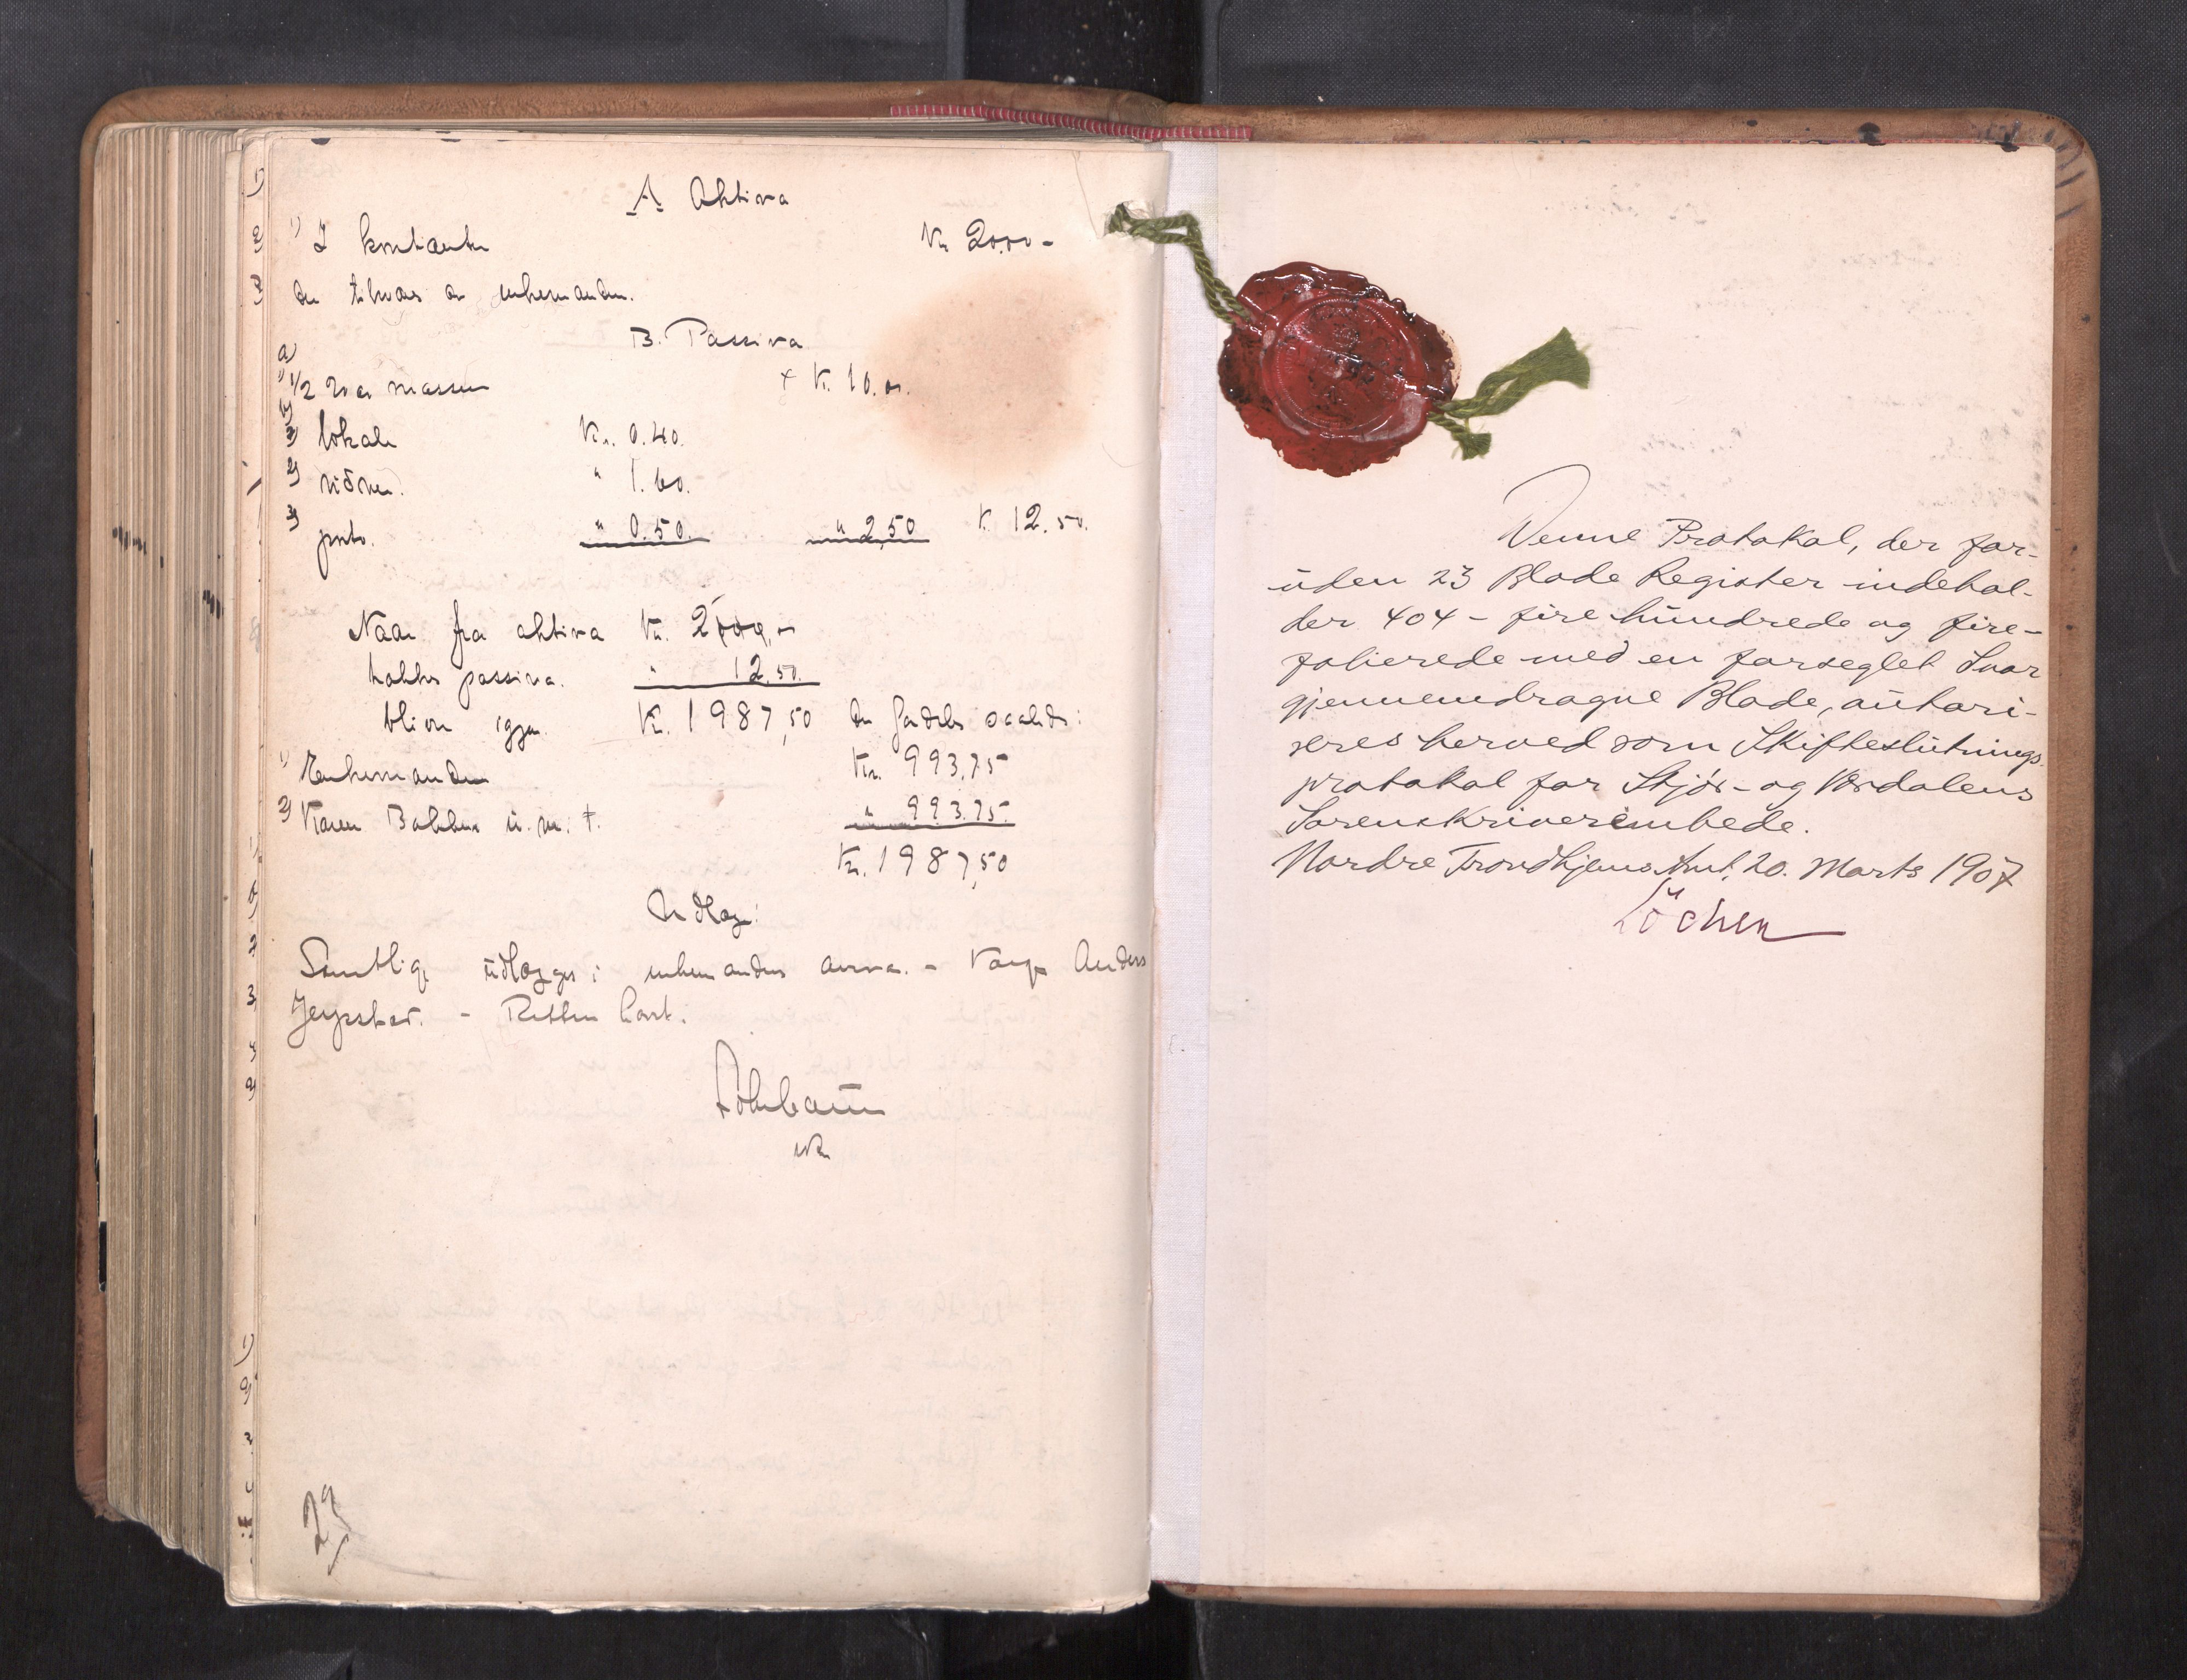 A Aktiva
1) I kontanter Kr 2000 -
der tilhører enkemanden.
B. Passiva
a)
1) 1/2 % av massen + Kr. 10.00.
b)
1) lokale Kr. 0.40.
2) vidner. " 1.60.
3) porto. " 0.50. " 2,50 Kr 12.50.
Naar fra aktiva Kr. 2000,00
trækkes passiva. " 12.50.
bliver igjen Kr. 1987,50 der fordeles saaledes:
1) Enkemanden Kr. 993.75
2) Karen Bakken u. m: †. " 993.75.
Kr. 1987,50
Udlæg:
Samtlige udlægges i enkemandens arv. - Anders
- Retten hævt.
29
Denne Protokol, der for-
uden 23 Blade Register indehol-
der 404 - fire hundrede og fire -
folierede med en forseglet Snor
gjennemdragne Blade, autori-
seres herved som Skifteslutnings-
protokol for Stjør- og Værdalens
Sorenskriverembede.
Nordre Trondhjems Amt, 20. Marts 1907
Löchen